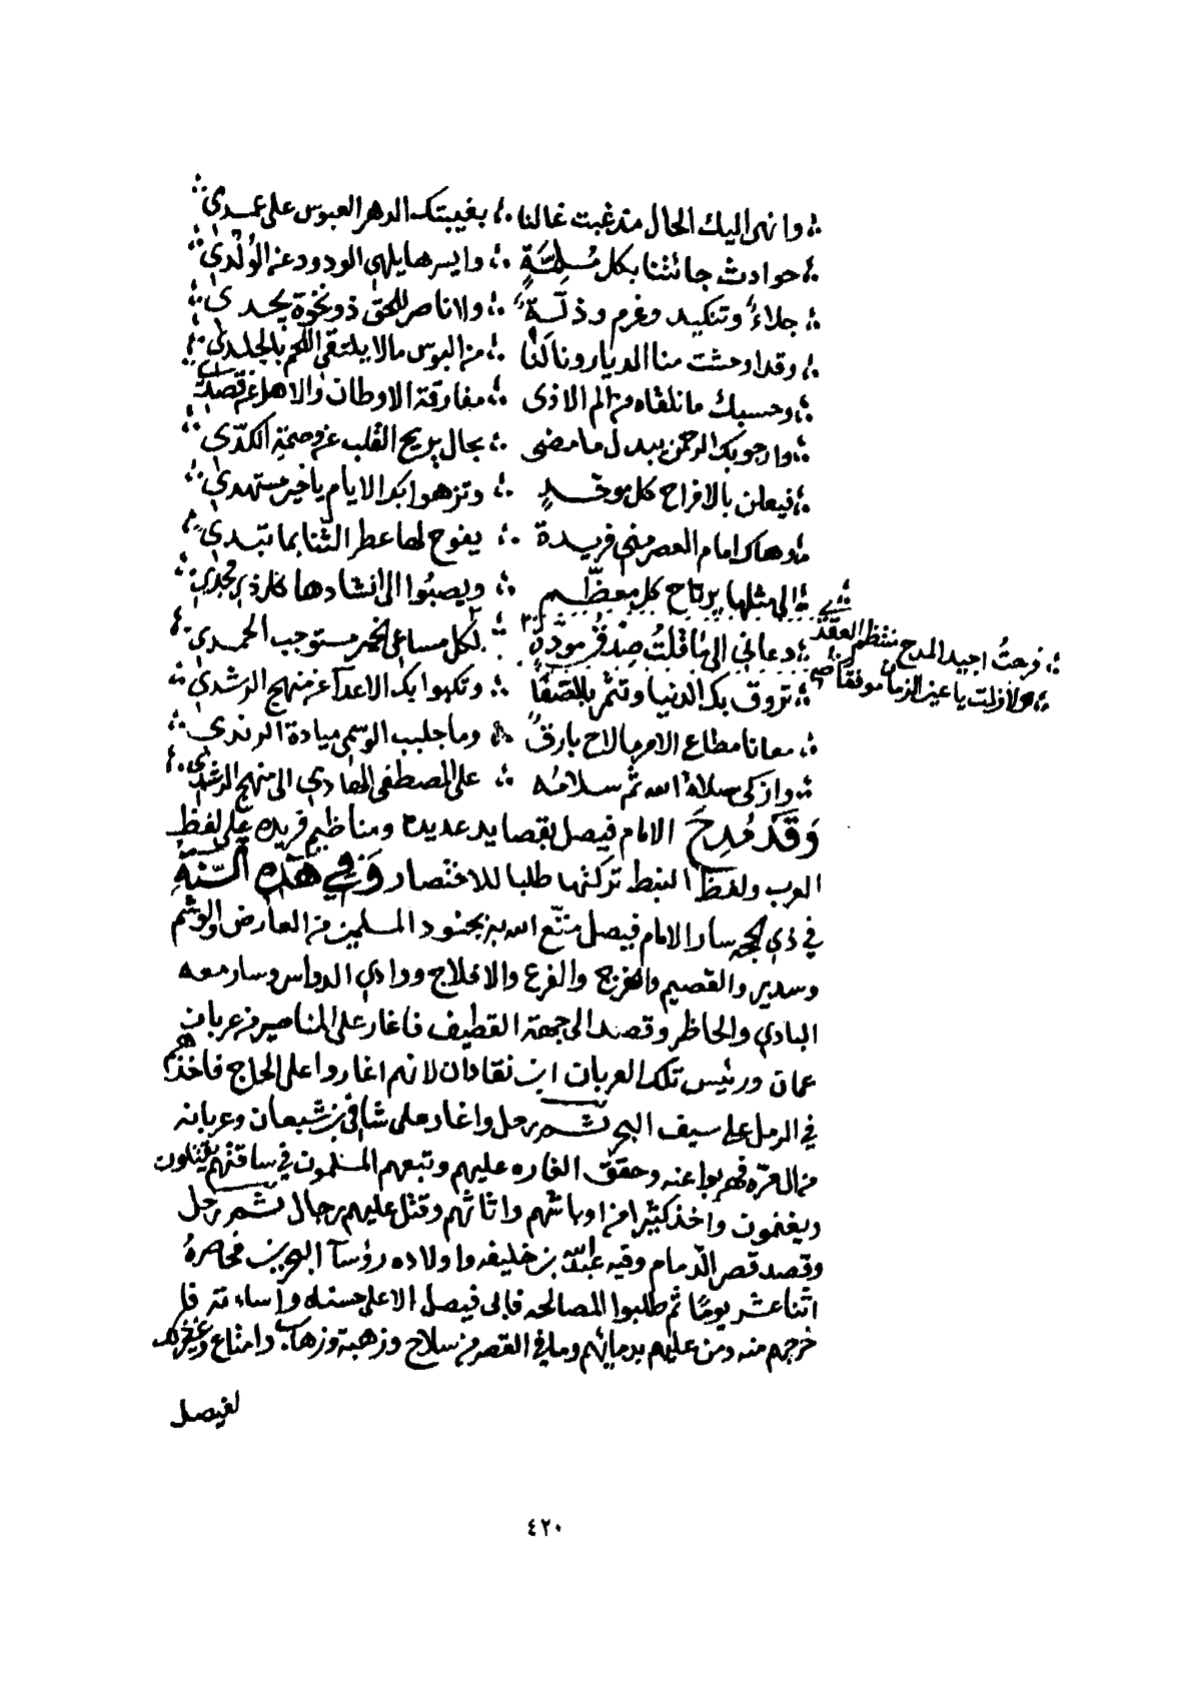 وانهى اليك الحال مذ غبت غالنا بغيبتك الدهر العبوس على عمدي
حوادث جائتنا بكل مُلِمَّةٍ وايسرها يلهي الودود عن الوُلْدي
جلاءٌ وتنكيد وغرم وذلّةٌ ولا ناصر للحق ذو نخوة يجدي
وقد اوحشت منا الديار ونالنا من البوس مالا يلتقي اللحم بالجلدي
وحسبك ما نلقاه من الم الاذى مفارقة الاوطان والاهل عن قصدي
وارجو بك الرحمن يبدل ما مضى بحال يريح القلب عن وصمة الكدّي
فيعلن بالافراح كل موحّدٍ وتزهوا بك الايام يا خير مستهدي
وهاك امام العصر مني فريدة يفوح لها عطر الثنا بما تبدي
الى مثلها يرتاح كل معظّم ويصبُوا الى انشادها كل ذي مجدي
دعاني الى ما قلتُ صِدْقُ مودّةٍ لكل مساعي الخير مستوجب الحمدي
فرحتُ اجيد المدح منتظم العقد
ولا زلت يا عين الزمان موفقا صح
تروق بك الدنيا وتثمر بالصفا وتكبوا بك الاعدآ عن منهج الرشدي
معانا مطاع الامر ما لاح بارقٌ وما جلبب الوسمي ميادة الرندي
وازكى صلاة الله ثم سلامه على المصطفى الهادي الى منهج الرشدي
وَقَدْ مُدِحَ الامام فيصل بقصايد عديدة ومناظيم فريده على لفظ
العرب ولفظ النبط تركتها طلبا للاختصار وَفي هَذِهِ السّنَةِ
في ذي الحجه سار الامام فيصل متّع الله به بجنود المسلمين من العارض والوشم
وسدير والقصيم والخرج والفرع والافلاج ووادي الدواسر وسار معه
البادي والحاظر وقصد الى جهة القطيف فاغار على المناصير من عربان
عمان ورئيس تلك العربان ابن نقادان لانهم اغاروا على الحاج فاخذهم
في الرمل على سيف البحر ثم رحل واغار على شافي بن شبعان وعربانه
من ال مرّه فهربوا عنه وحقق الغاره عليهم وتبعهم المسلمون في ساقتهم يقتلون
ويغنمون واخذ كثيرا من اوباشهم واثاثهم وقتل عليهم رجال ثم رحل
وقصد قصر الدّمام وفيه عبدالله بن خليفه واولاده رؤسآ البحرين فحاصرهُ
اثنا عشر يومًا ثم طلبوا المصالحه فابى فيصل الا على حسناه وآساءته فا
خرجهم منه ومن عليهم بدمائهم وما في القصر من سلاح وزهبة وزهاب وامتاع وغيره
لفيصل
٤٢٠